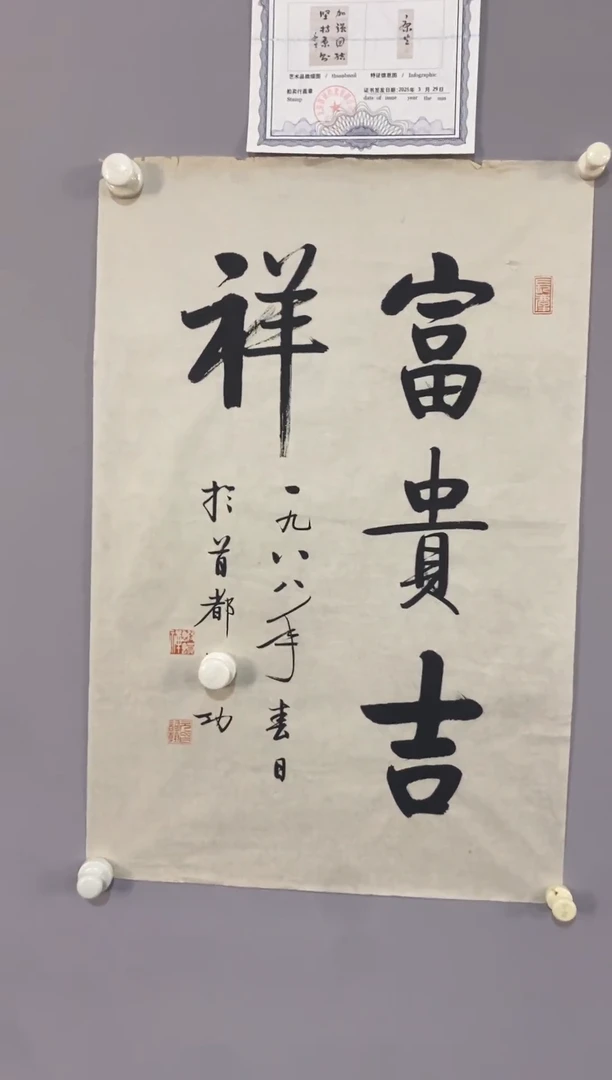 加强团结
坚持原则
康生
艺术品微缩图 / Thumbnail
特征信息图 / Infographic
Stamp:
证书签发日期:2025年 3 月 29日
date of issue year the sun
富貴吉
祥
一九八八年春日
於首都
功